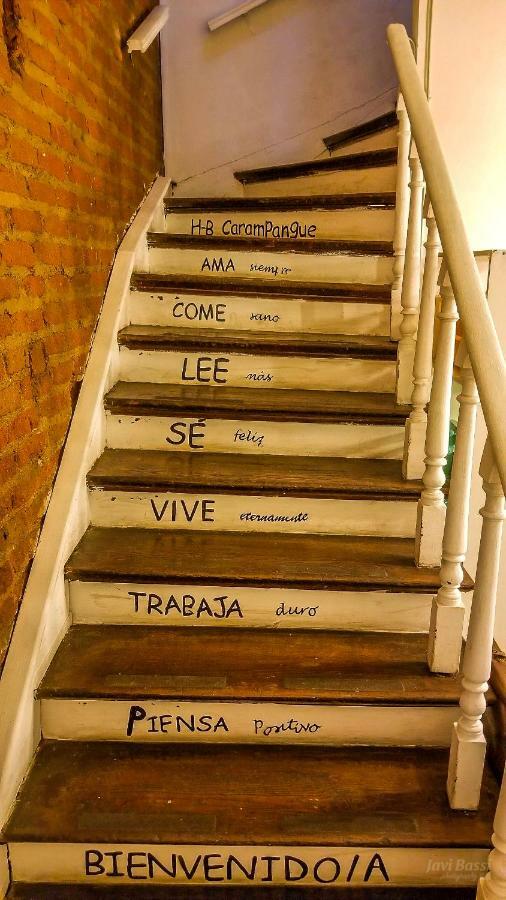 H-B Carampangue
AMA siempre
COME sano
LEE más
SÉ feliz
VIVE eternamente
TRABAJA duro
PIENSA Positivo
BIENVENIDO/A
Javi Bassi